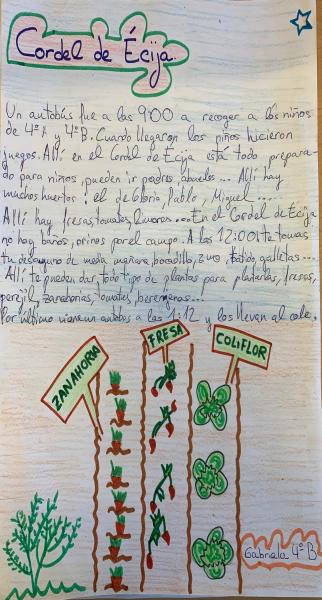 Cordel de Écija.
Un autobús fue a las 9:00 a recoger a los niños
de 4ºA y 4ºB. Cuando llegaron los niños hicieron
juegos. Allí en el Cordel de Écija está todo prepara-
do para niños, pueden ir padres, abuelos... Allí hay
muchos huertos: el de Gloria, Pablo, Miguel....
Allí hay fresas, tomates, limones... En el Cordel de Écija
no hay baños, orinas por el campo. A las 12:00 te tomas
tu desayuno de media mañana, bocadillo, zumo, batido, galletas...
Allí te pueden dar todo tipo de plantas para plantarlas, fresas,
perejil, zanahorias, tomates, berenjenas...
Por último viene un autobús a las 1:12 y los llevan al cole.
ZANAHORIA
FRESA
COLIFLOR
Gabriela 4º B